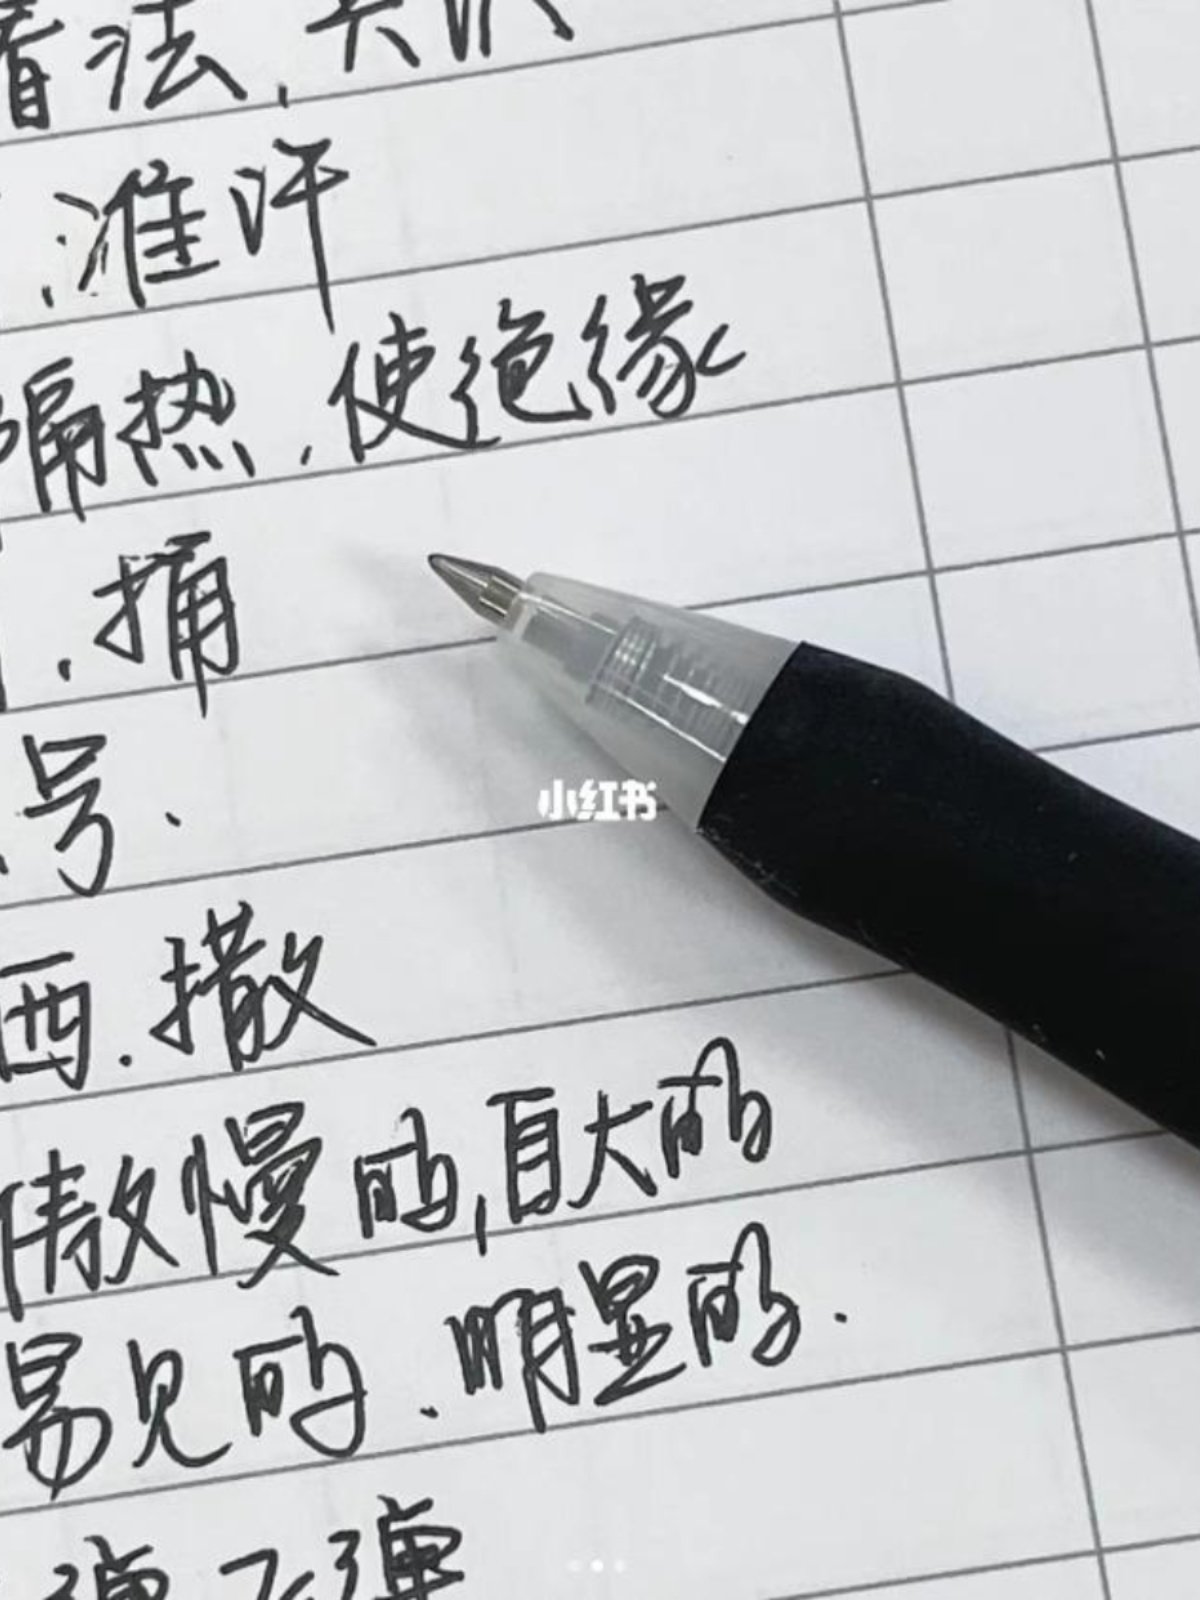 看法,
,准许
隔热,使绝缘
.捅
号.
西.撒
傲慢的,自大的
易见的.明显的.
小红书